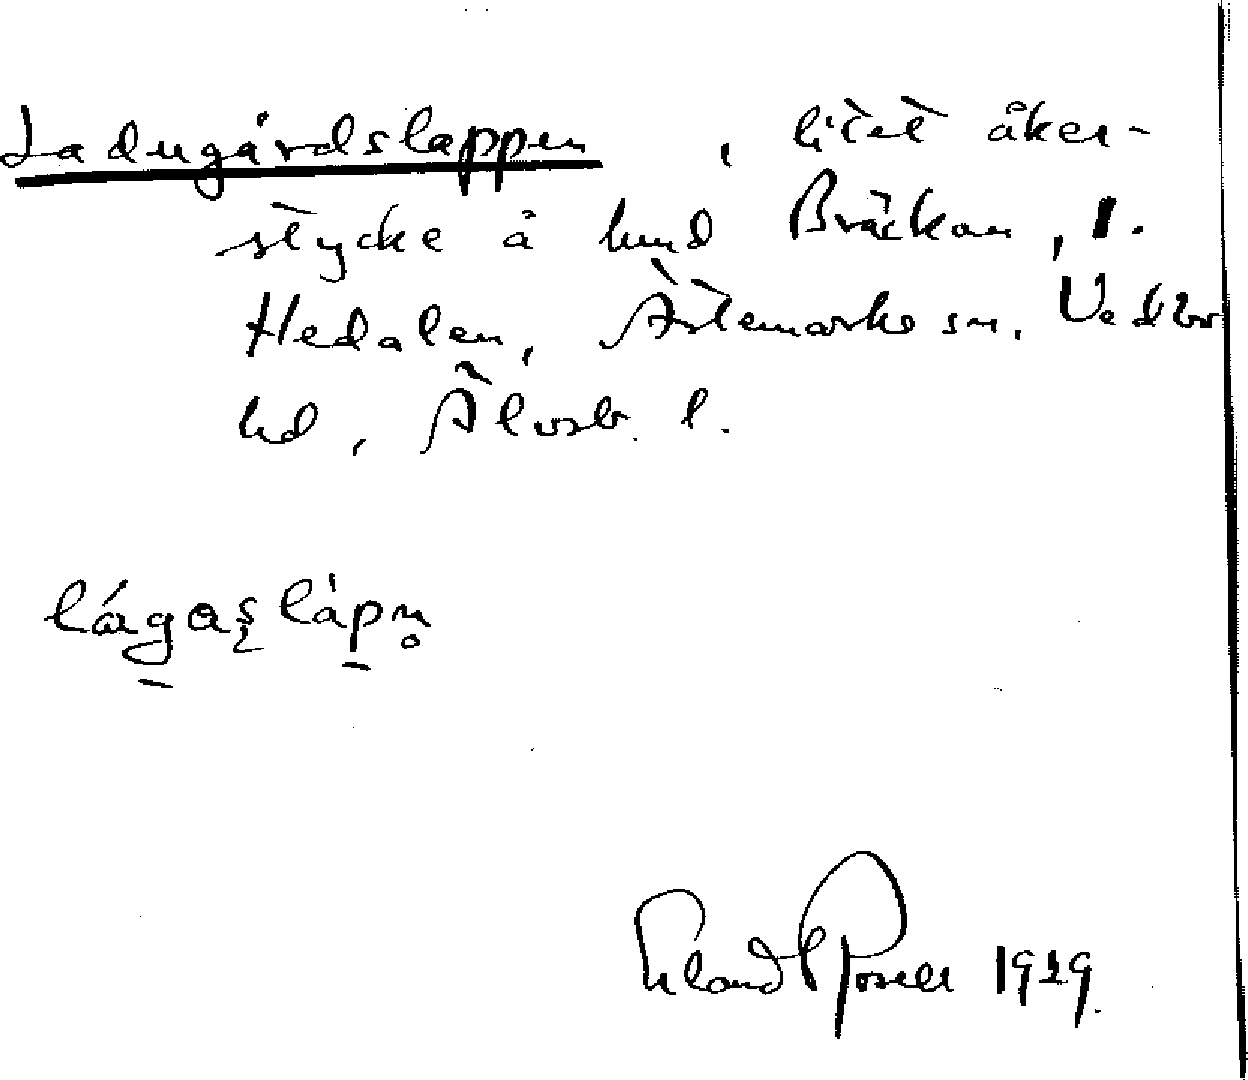 Ladugårdslappen, litet åker-
stycke å hmd Bräckan, 1.
Hedalen, Ärtemarks sn, Vedbo
hd, Älvsb. l.
lágaslápn̥
Erland Rosell 1929.